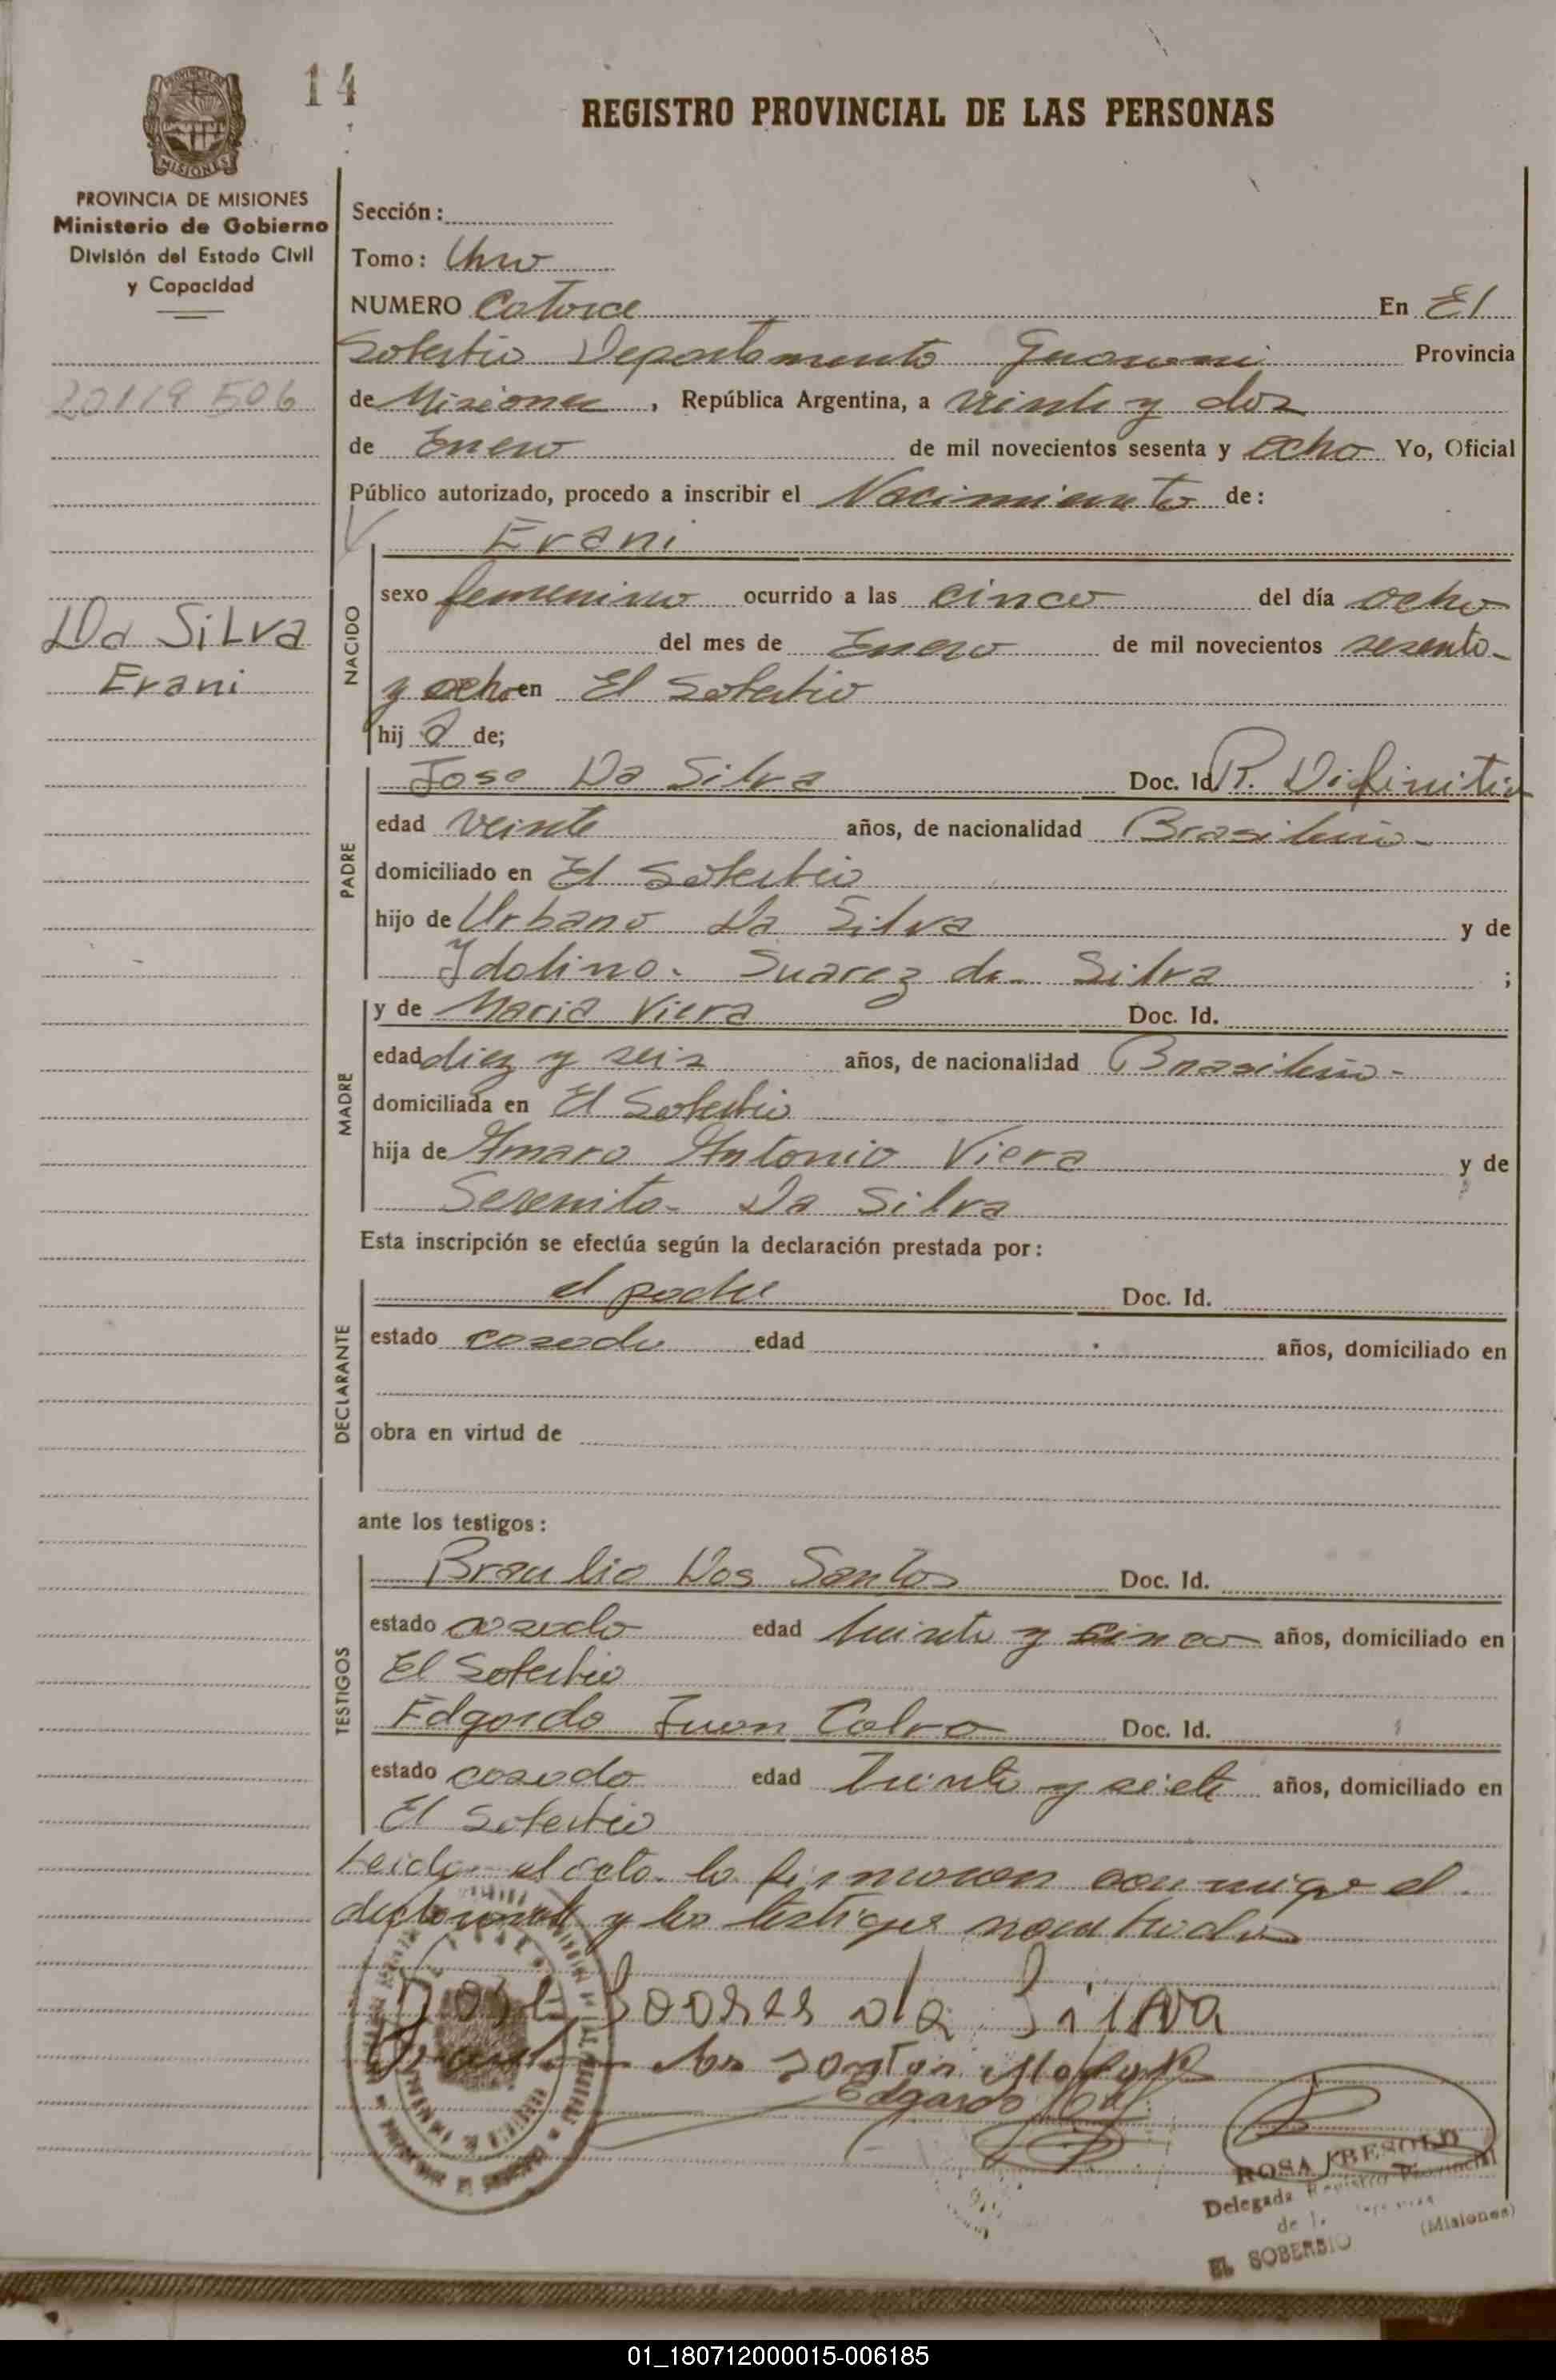 14
REGISTRO PROVINCIAL DE LAS PERSONAS
PROVINCIA DE MISIONES
Ministerio de Gobierno
División del Estado Civil
y Capacidad
20119 506
Da Silva
Erani
Sección:
Tomo: Uno
NUMERO Catorce En El
Soberbio Departamento Guarani Provincia
de Misiones, República Argentina, a veinte y dos
de Enero de mil novecientos sesenta y ocho Yo, Oficial
Público autorizado, procedo a inscribir el Nacimiento de:
Erani
NACIDO
sexo femenino ocurrido a las cinco del día ocho
del mes de Enero de mil novecientos sesenta
y ocho en El Soberbio
hij a de;
PADRE
Jose Da Silva Doc. Id. R. Difinitiva
edad veinte años, de nacionalidad Brasileña
domiciliado en El Soberbio
hijo de Urbano Da Silva y de
Idolina Suarez da Silva ;
MADRE
y de Maria Viera Doc. Id.
edad diez y seis años, de nacionalidad Brasileña
domiciliada en El Soberbio
hija de Amaro Antonio Viera y de
Serenita Da Silva
Esta inscripción se efectúa según la declaración prestada por:
DECLARANTE
el padre Doc. Id.
estado casado edad años, domiciliado en
obra en virtud de
ante los testigos:
TESTIGOS
Braulio Dos Santos Doc. Id.
estado casado edad treinta y cinco años, domiciliado en
El Soberbio
Edgardo Juan Calvo Doc. Id.
estado casado edad treinta y siete años, domiciliado en
El Soberbio
Leida el acta la firmaron conmigo el
declarante y los testigos nombrados
José Soares da Silva
dos santos
Edgardo
ROSA BESOLD
Delegada Registro Provincial
de l
EL SOBERBIO (Misiones)
01_180712000015-006185